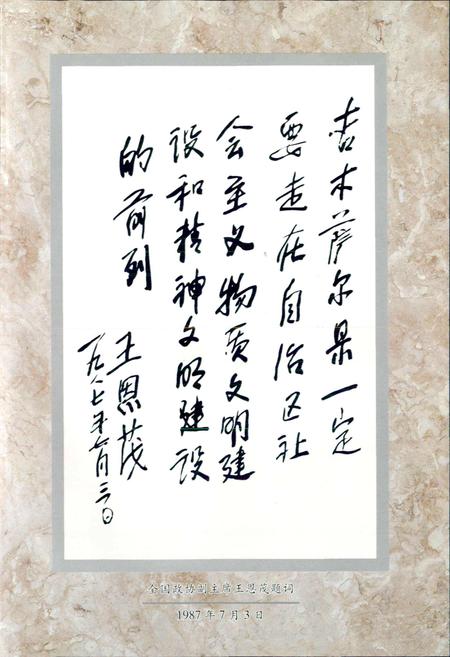 吉木萨尔县一定
要走在自治区社
会主义物质文明建
设和精神文明建设
的前列
王恩茂
一九八七年七月三日
全国政协副主席王恩茂题词
1987年7月3日